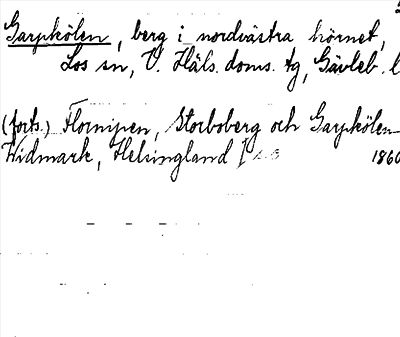 Garpkölen, berg i nordvästra hörnet,
Los sn, V. Häls. doms. tg, Gävleb. l
(forts.) Flornipen, Storboberg och Garpkölen
Widmark, Helsingland I 1860